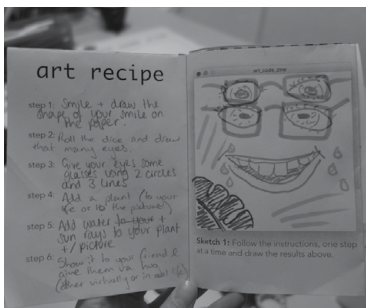 art recipe
step 1: Smile + draw the
shape of your smile on
the paper.
step 2: Roll the dice and draw
that many eyes.
step 3: Give your eyes some
glasses using 2 circles
and 3 lines
step 4: Add a plant (to your
life or to the picture)
step 5: Add water to your +
sun rays to your plant
+/ picture
step 6: Show it to your friend &
give them via hug
(either virtually or in real life)
art_code.zine
Sketch 1: Follow the instructions, one step
at a time and draw the results above.